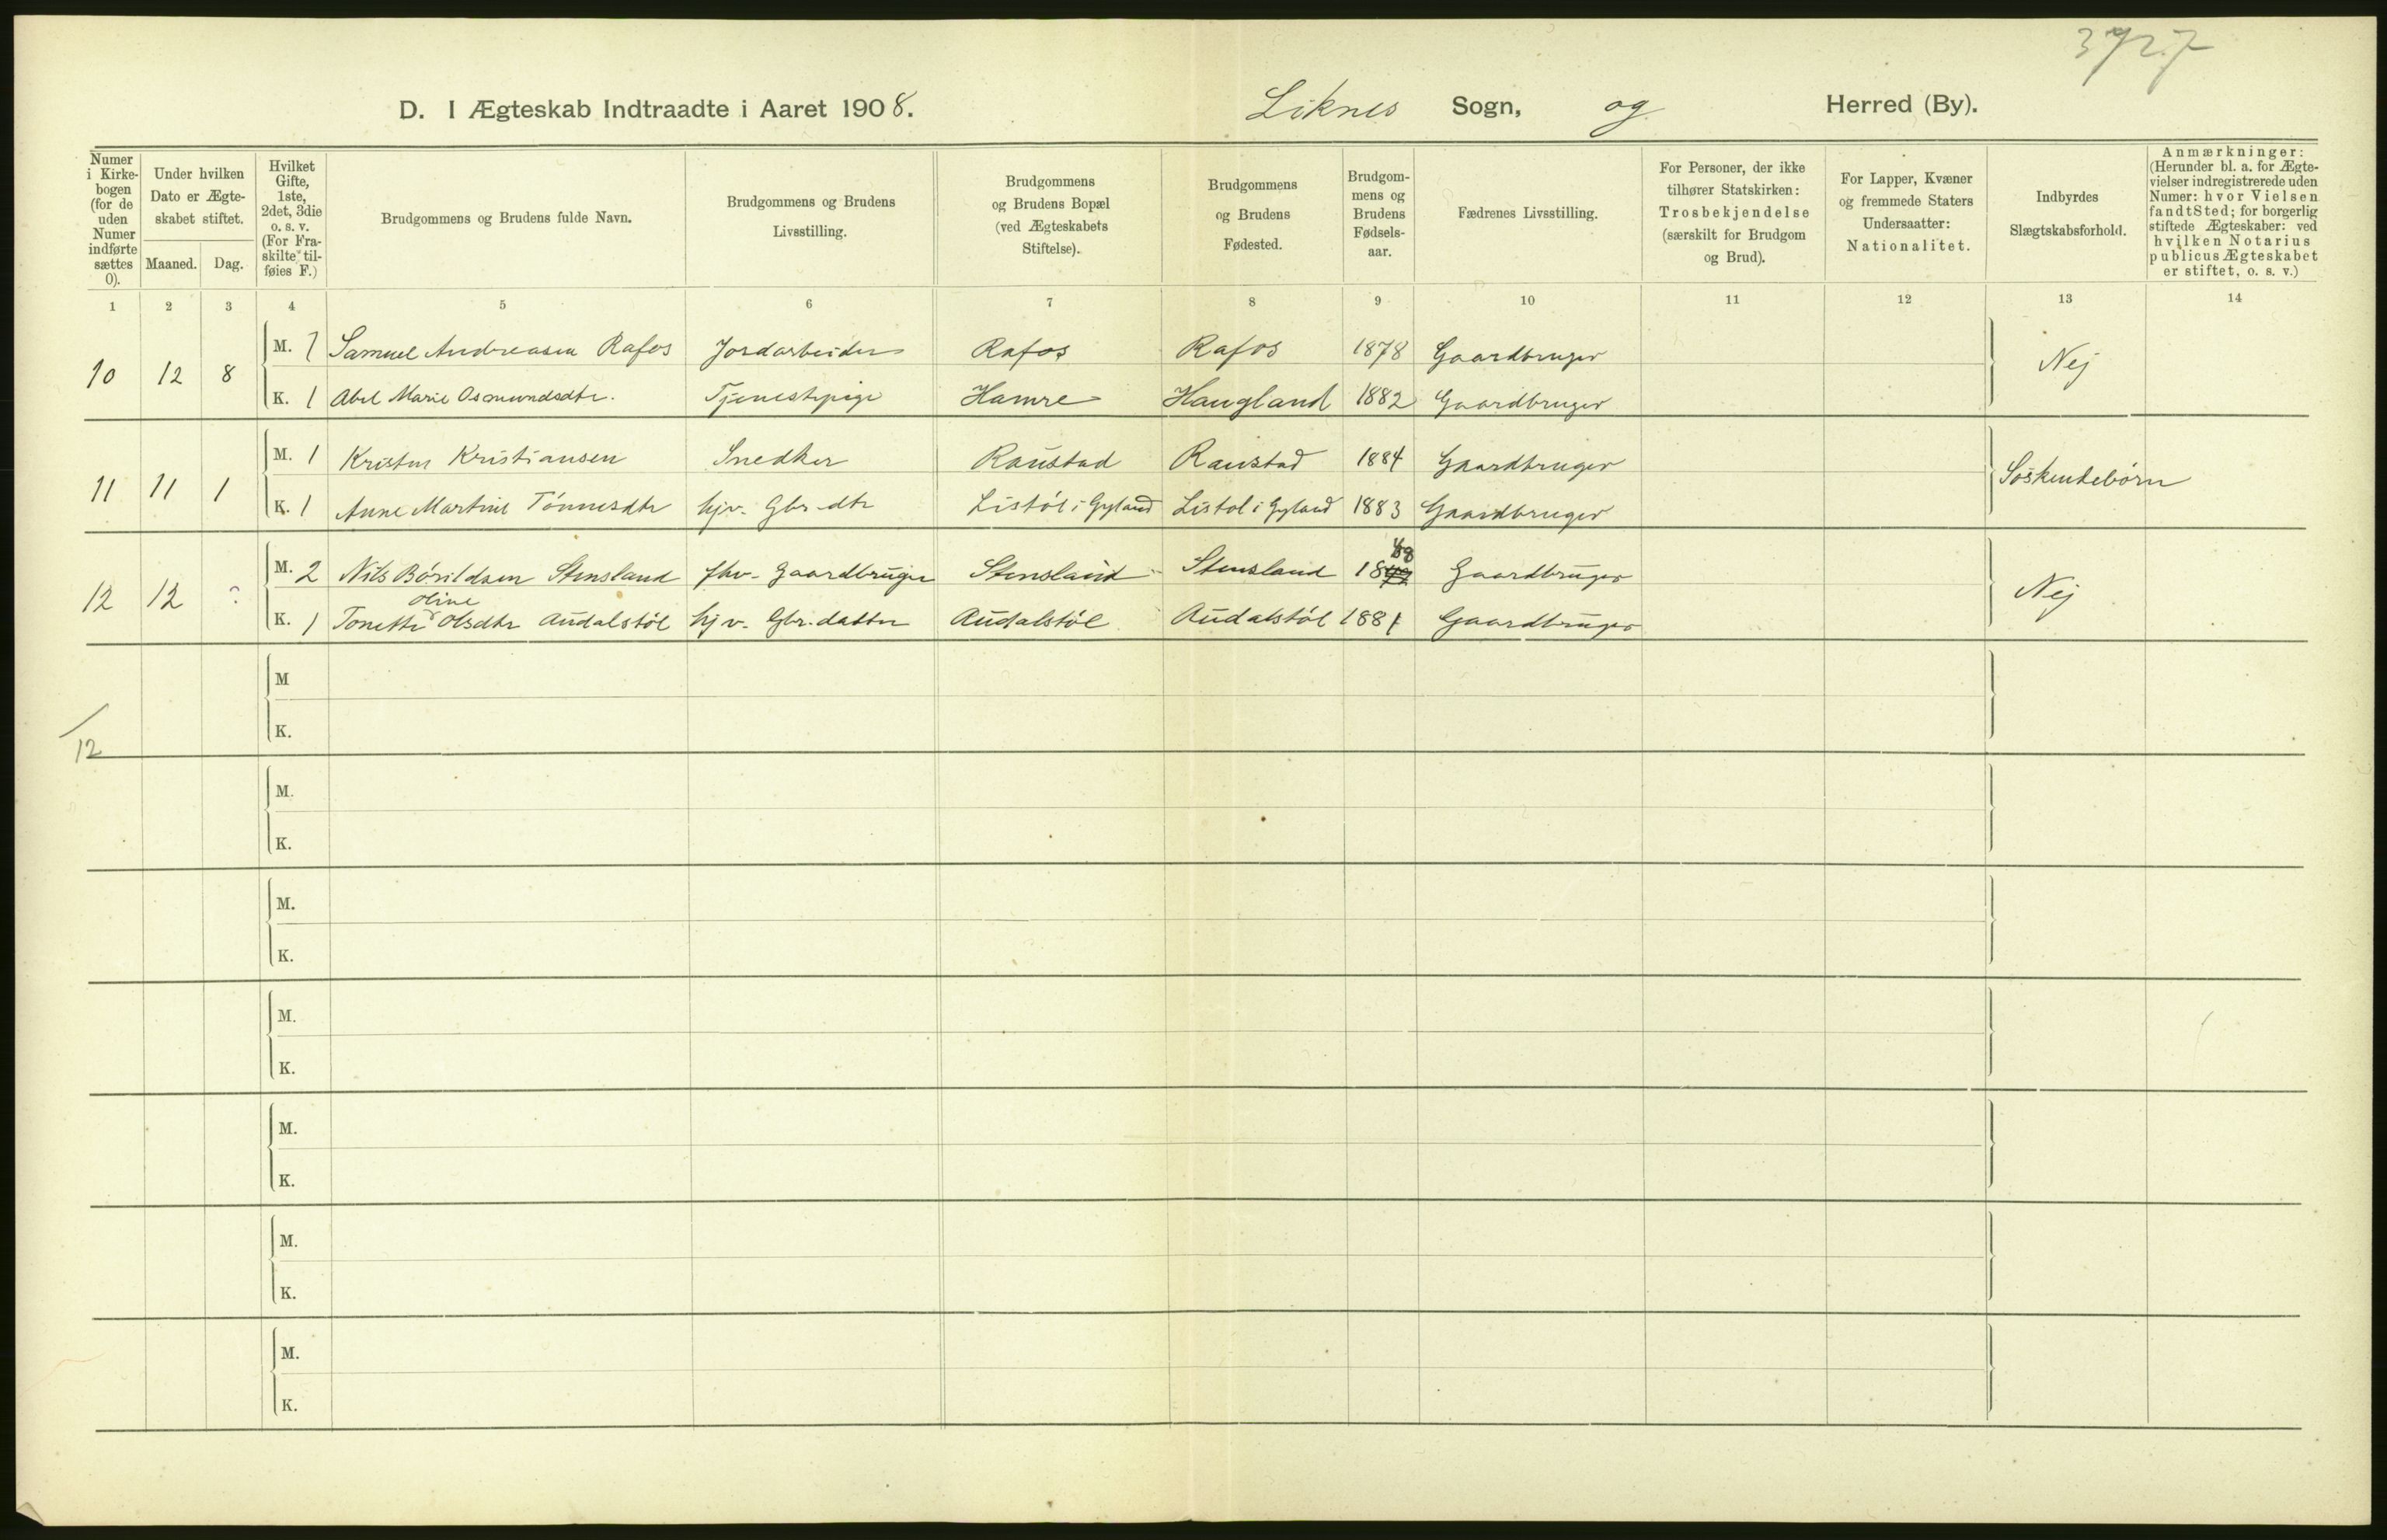 3727
D. I Ægteskab Indtraadte i Aaret 1908. Liknes Sogn, og Herred (By).
Numer i Kirke-bogen (for de uden Numer indførte sættes 0).
Under hvilken Dato er Ægte-skabet stiftet.
Maaned. Dag.
Hvilket Gifte, 1ste, 2det, 3die o. s. v. (For Fra-skilte til-føies F.)
Brudgommens og Brudens fulde Navn.
Brudgommens og Brudens Livsstilling.
Brudgommens og Brudens Bopæl (ved Ægteskabets Stiftelse).
Brudgommens og Brudens Fødested.
Brudgom-mens og Brudens Fødsels-aar.
Fædrenes Livsstilling.
For Personer, der ikke tilhører Statskirken: Trosbekjendelse (særskilt for Brudgom og Brud).
For Lapper, Kvæner og fremmede Staters Undersaatter: Nationalitet.
Indbyrdes Slægtskabsforhold.
Anmærkninger: (Herunder bl. a. for Ægte-vielser indregistrerede uden Numer: hvor Vielsen fandt Sted; for borgerlig stiftede Ægteskaber: ved hvilken Notarius publicus Ægteskabet er stiftet, o. s. v.)
1 2 3 4 5 6 7 8 9 10 11 12 13 14
10 12 8 M. 1 Samuel Andreasen Rafos Jordarbeider Rafos Rafos 1878 Gaardbruger Nej
K. 1 Abel Marie Osmundsdtr. Tjenestepige Hamre Haugland 1882 Gaardbruger
11 11 1 M. 1 Kristen Kristiansen Snedker Raustad Raustad 1884 Gaardbruger Søskendebørn
K. 1 Anne Martine Tønnesdtr hjv. Gbr. dtr Listøl i Gyland Listol i Gyland 1883 Gaardbruger
12 12 M. 2 Nils Bórildsen Stensland fhv. Gaardbruger Stensland Stensland 18 48 Gaardbruger Nej
K. 1 Tonette Oline Olsdtr Audalstól hjv. Gbr. datter Audalstól Audalstól 1881 Gaardbruger
M
K.
12
M.
K.
M.
K.
M.
K.
M.
K.
M.
K.
M.
K.